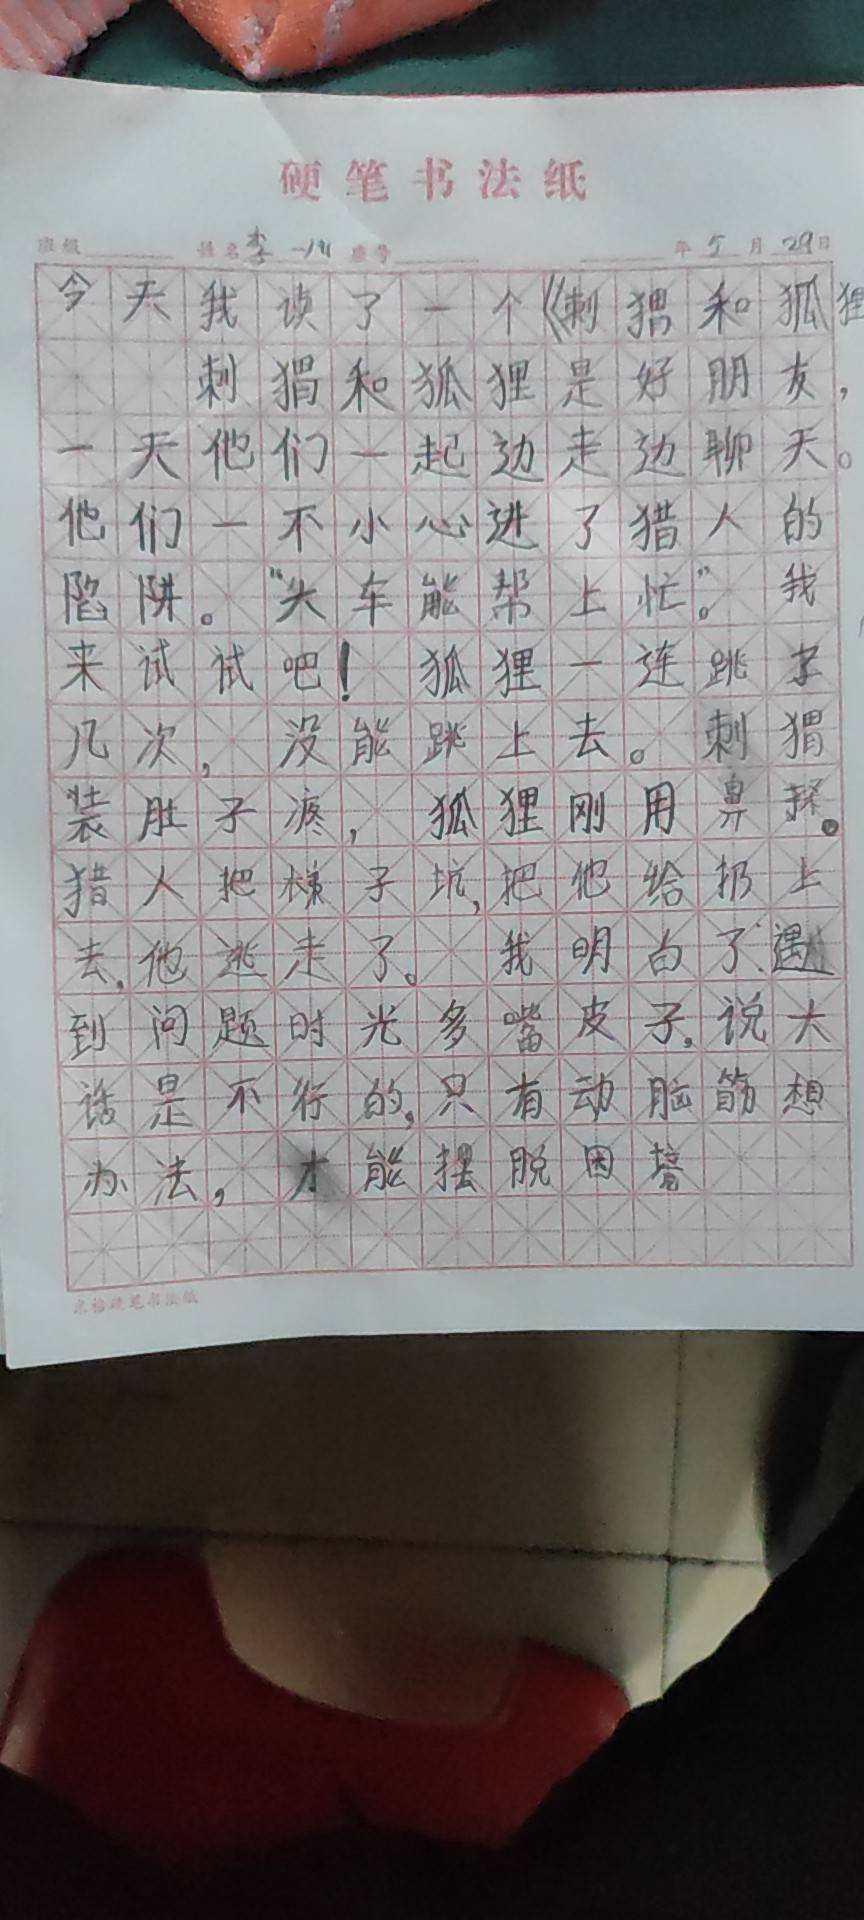 硬笔书法纸
班级 姓名李一 座号 年5月29日
今天我读了一个《刺猬和狐狸
刺猬和狐狸是好朋友，
一天他们一起边走边聊天。
他们一不小心进了猎人的
陷阱。“头车能帮上忙”。我
来试试吧！狐狸一连跳字
几次，没能跳上去。刺猬
装肚子疼，狐狸刚用鼻择。
猎人把刺子坑，把他给扔上
去.他逃走了。我明白了:遇
到问题时光多嘴皮子，说大
话是不行的，只有动脑筋想
办法，才能摆脱困境
米格硬笔书法纸